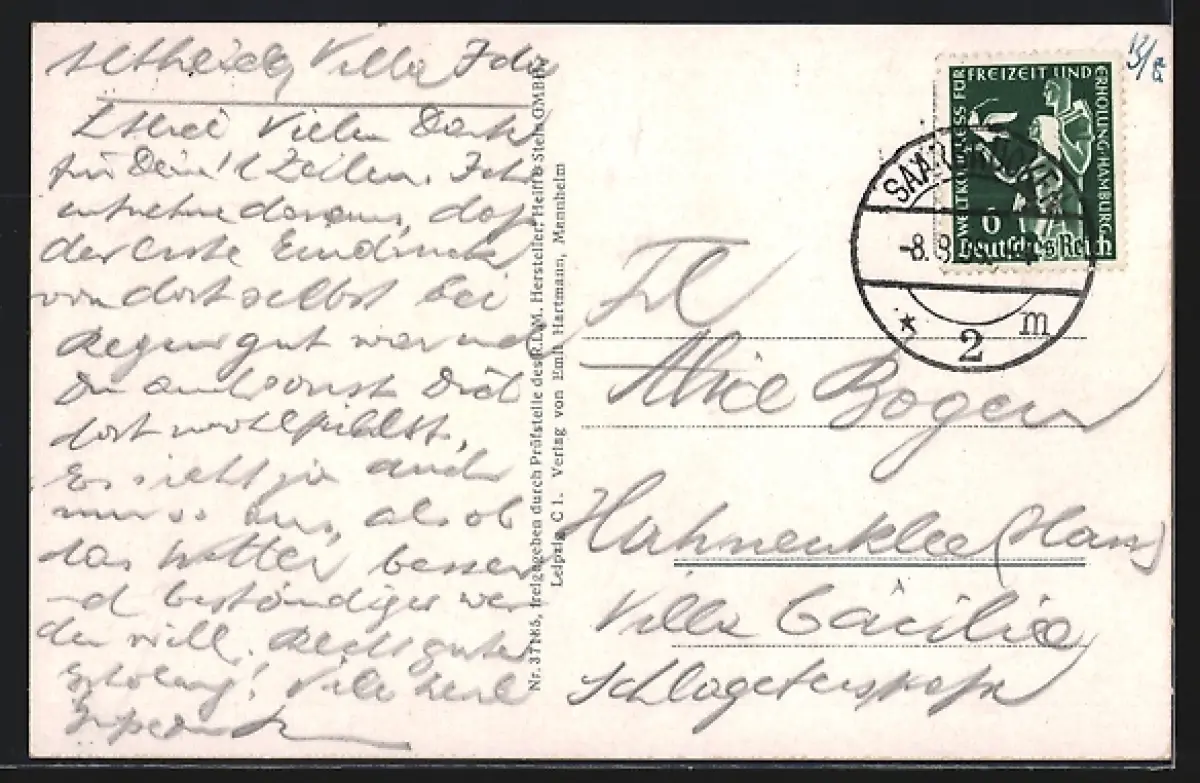 Altheide, Villa Ida
Vielen Dank
für Dein' l Zeilen. Ich
entnehme daraus, daß
der erste Eindruck
von dortselbst bei
Regen gut war und
Du auch sonst Dich
dort wohlfühlst.
Es sieht ja auch
aus, als ob
das Wetter besser
und beständiger wer-
den will. Recht gute
Erholung! Viele herzl
Nr. 37185, freigegeben durch Prüfstelle des R.L.M. Hersteller: Heiff & Stein GMBH
Leipzig C 1. Verlag von Emil Hartmann, Mannheim
13/8
WELTKONGRESS FÜR
FREIZEIT UND
ERHOLUNG·HAMBURG
6
Deutsches Reich
SAARBRÜCKEN
-8.8.
* 2 m
Frl
Alice Bogen
Hahnenklee (Harz)
Villa Cäcilie
Schlageterstraße